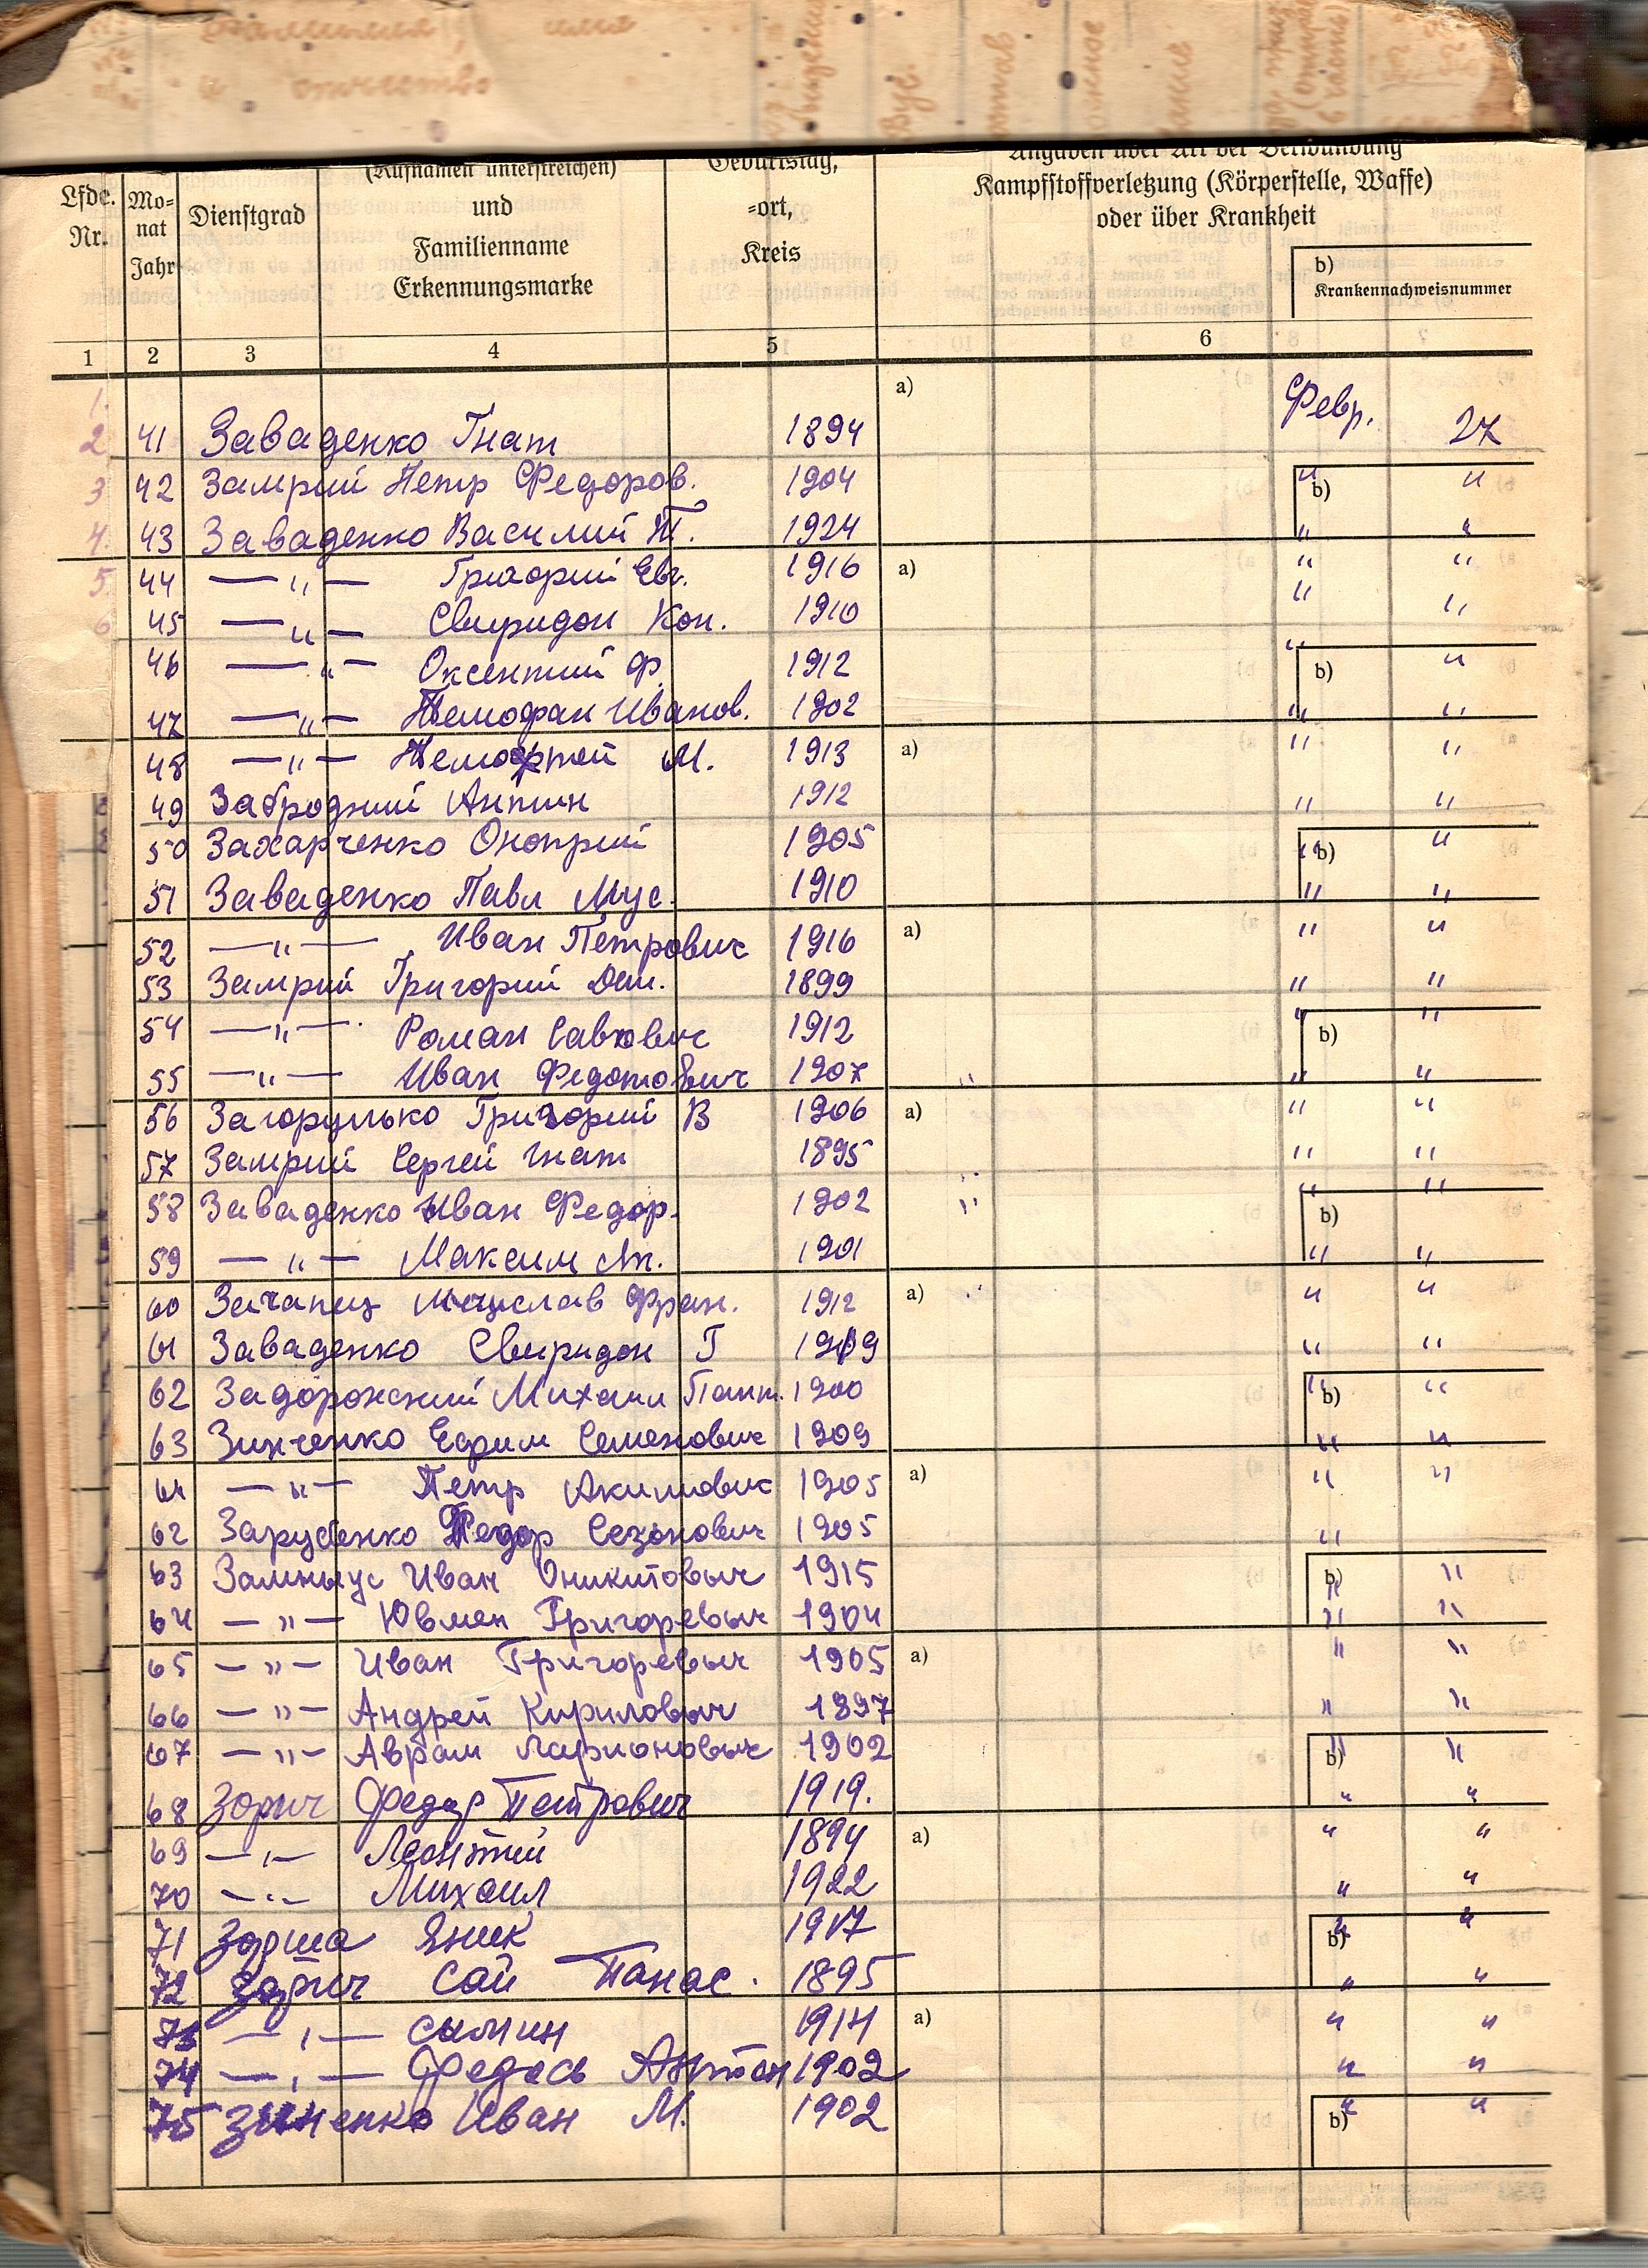 фамилия, имя
и отчество
(Rufnamen unterstreichen)
Geburtstag,
Angaben über Art der Verwundung
Lfde. Nr.
Mo-nat Jahr
Dienstgrad
und
Familienname
Erkennungsmarke
-ort,
Kreis
Kampfstoffverletzung (Körperstelle, Waffe)
oder über Krankheit
b)
Krankennachweisnummer
1 2 3 4 5 6
1. a) Февр.
2 41 Заваденко Гнат 1894 27
3 42 Замрий Петр Федоров. 1904 " b) "
4. 43 Заваденко Василий Т. 1924 " "
5. 44 — " — Григорий Евг. 1916 a) " "
6 45 — " — Свиридон Кон. 1910 " "
46 — " — Оксентий Ф. 1912 " b) "
47 — " — Темофан Иванов. 1902 " "
48 — " — М. 1913 a) " "
49 Забродний Антин 1912 " "
50 Захарченко Оноприй 1905 " b) "
51 Заваденко Павл Мус. 1910 " "
52 — " — Иван Петрович 1916 a) " "
53 Замрий Григорий Дем. 1899 " "
54 — " — Роман Савович 1912 " b) "
55 — " — Иван Федотович 1907 " " "
56 Загорулько Григорий В 1906 a) " "
57 Замрий Сергей Гнат 1895 " "
58 Заваденко Иван Федор. 1902 " " b) "
59 — " — Максим Ан. 1901 " "
60 Мечислав Фран. 1912 a) " "
61 Заваденко Свиридон Г 1909 " "
62 Задорожний Михаил Пант. 1900 " b) "
63 Зинченко Ефрим Семенович 1909 " "
64 — " — Петр Акимович 1905 a) " "
62 Зарубенко Федор Сезонович 1905 "
63 Замныус Иван Оникитовыч 1915 b) " "
64 — " — Ювмен Григоревыч 1904 " "
65 — " — Иван Григоревыч 1905 a) " "
66 — " — Андрей Кириловыч 1897 " "
67 — " — Аврам Ларионовыч 1902 b) " "
68 Зорич Федор Петрович 1919. " "
69 — " — Леонтий 1894 a) " "
70 — " — Михаил 1922 " "
71 Янек 1917 b) " "
72 Зорич Сай Панас. 1895 " "
73 — " — Сымин 1914 a) " "
74 — " — Федось Антон 1902 " "
75 Зиненко Иван М. 1902 b) " "